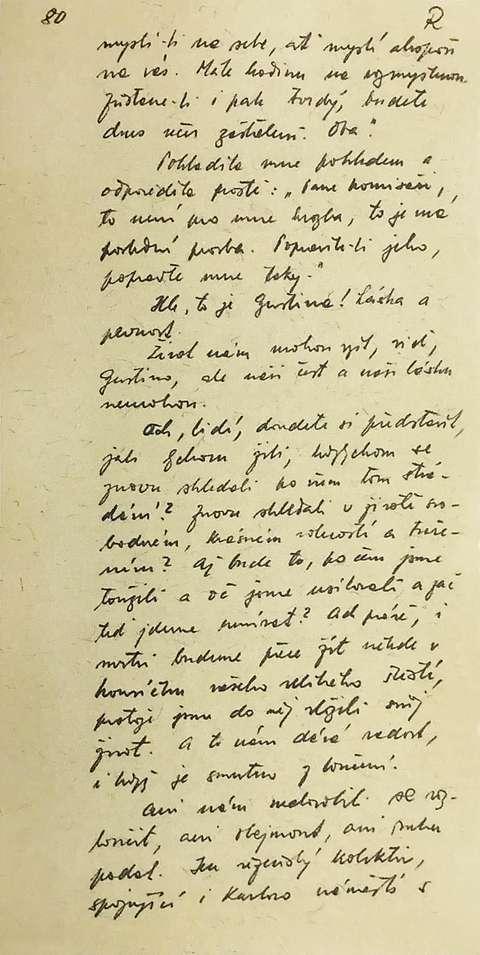 80 R
myslí-li na sebe, ať myslí alespoň
na vás. Máte hodinu na rozmyšlenou.
Zůstane-li i pak tvrdý, budete
dnes večer zastřeleni. Oba."
Pohladila mne pohledem a
odpověděla prostě: „Pane komisaři,
to není pro mne hrozba, to je má
poslední prosba. Popravíte-li jeho,
popravte mne taky."
Hle, to je Gustina! Láska a
pevnost.
Život nám mohou vzít, viď,
Gustino, ale naši čest a naši lásku
nemohou.
Ach, lidi, dovedete si představit,
jak bychom žili, kdybychom se
znovu shledali po všem tom strá-
dání? Znovu shledali v životě svo-
bodném, krásném volností a tvoře-
ním? Až bude to, po čem jsme
toužili a oč jsme usilovali a zač
teď jdeme umírat? Ad páté, i
mrtvi budeme přece žít někde v
koutečku vašeho velikého štěstí,
protože jsme do něj vložili svůj
život. A to nám dává radost,
i když je smutno z loučení.
Ani nám nedovolili se roz-
loučit, ani obejmout, ani ruku
podat. Jen vězeňský kolektiv,
spojující i Karlovo náměstí s